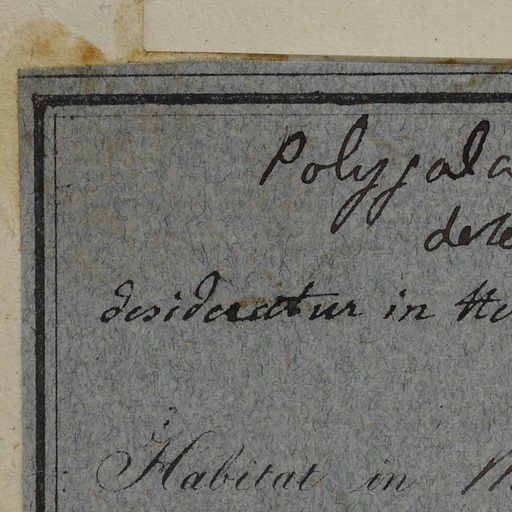 Polygala
desideratur in
Habitat in